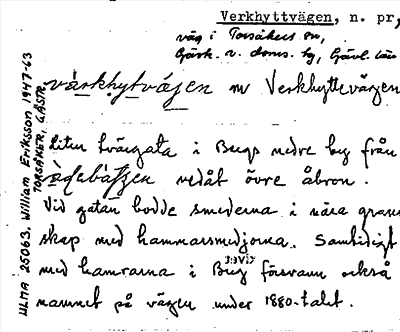 Verkhyttvägen, n. pr,
väg i Torsåkers sn,
Gästr. v. doms. hg, Gävl. län
värkhytvägen nv Verkhyttevägen
ULMA 25063. William Eriksson 1947-63
TORSÅKER, GÄSTR.
Liten tvärgata i Bergs nedre by från
vedåt övre åbron.
Vid gatan bodde smederna i nära gran-
skap med hammarsmedjorna. Samtidigt
med hamrarna i Berg försvann också
namnet på vägen under 1880-talet.